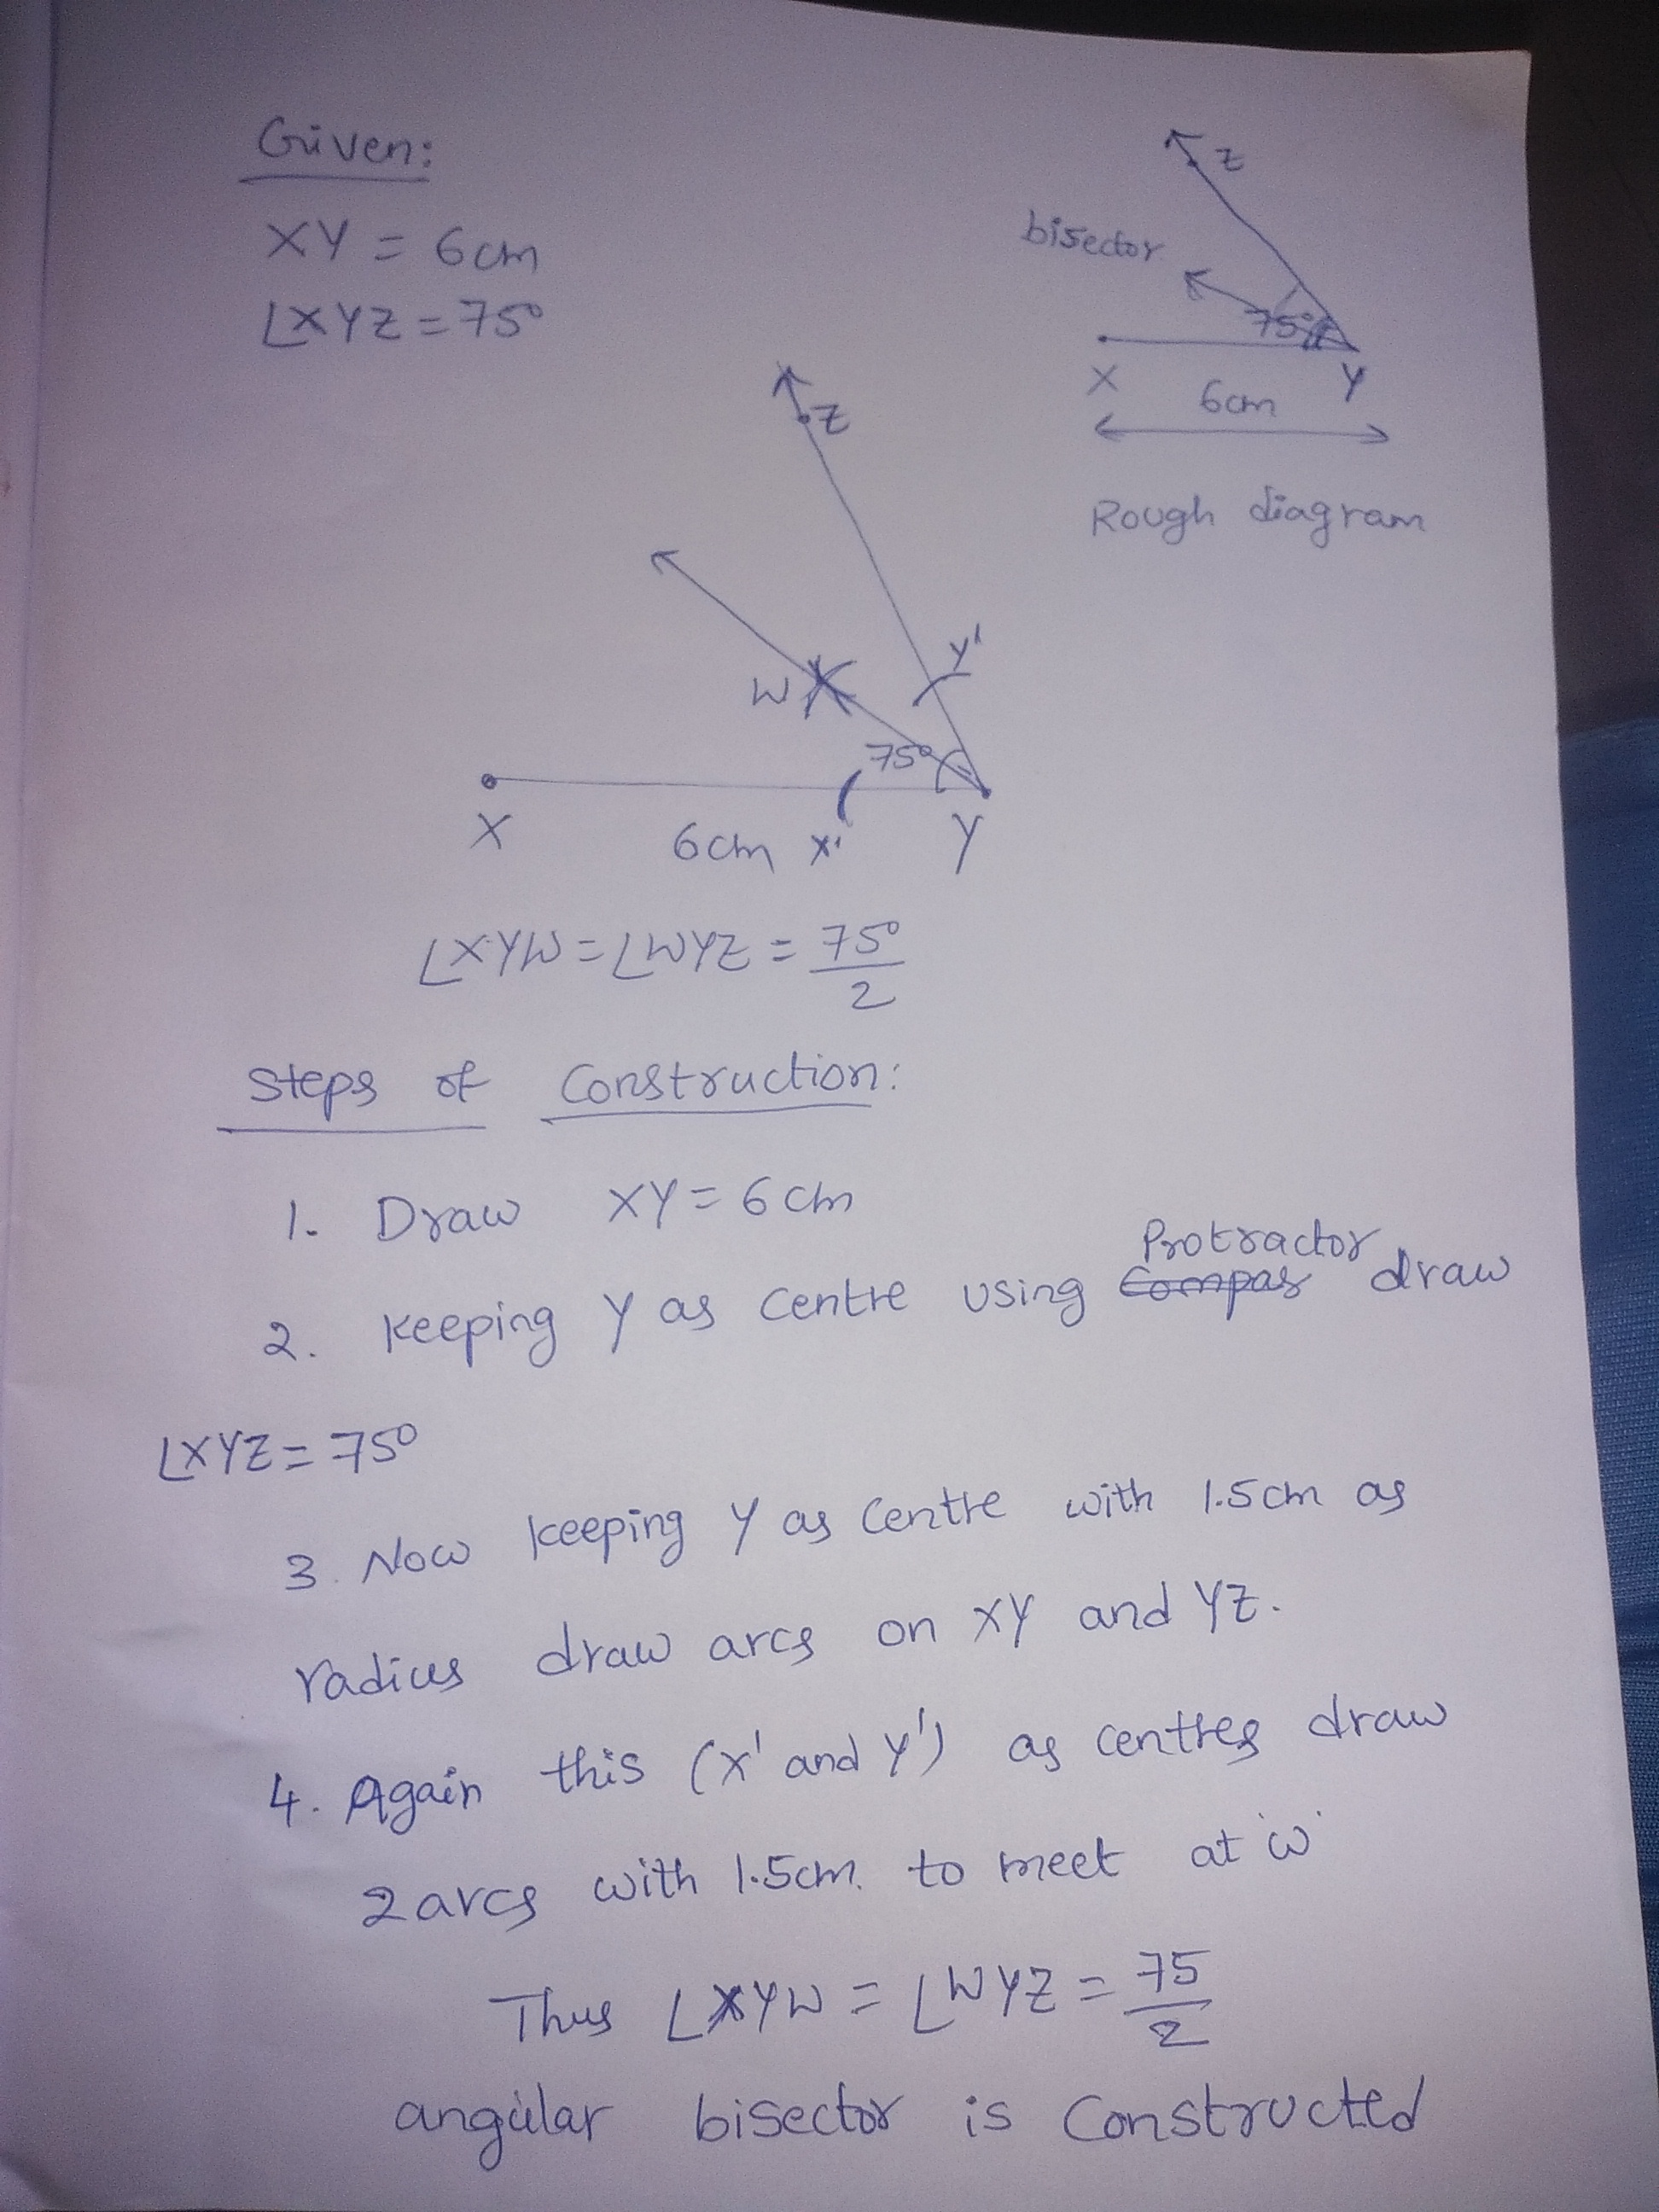 Given:
XY = 6cm
∠XYZ = 75°
Z
bisector
75°
X
Y
6cm
Rough diagram
Z
Y'
W
75°
X
6cm
X'
Y
∠XYW = ∠WYZ = 75°/2
Steps of Construction:
1. Draw XY = 6cm
Protractor
2. Keeping Y as centre using Compas draw
∠XYZ = 75°
3. Now keeping Y as centre with 1.5cm as
radius draw arcs on XY and YZ.
4. Again this (X' and Y') as centres draw
2 arcs with 1.5cm. to meet at 'W'
Thus ∠XYW = ∠WYZ = 75/2
angular bisector is Constructed